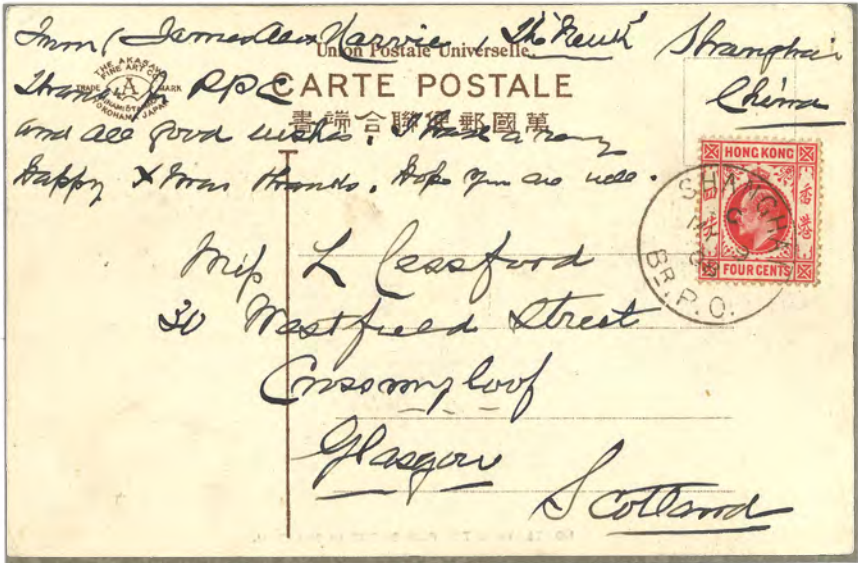 From James Alex Narvie, Shanghai
Union Postale Universelle.
CARTE POSTALE
China
萬國郵便聯合端書
THE AKABAWA
FINE ART CO.
TRADE A MARK
YOKOHAMA JAPAN
Thanks for PPC
and all good wishes. I have a very
Happy Xmas thanks. Hope you are well.
HONG KONG
香港
FOUR CENTS
SHANGHAI
Br. P. O.
Miss L Cessford
30 Westfield Street
Crossmyloof
Glasgow
Scotland